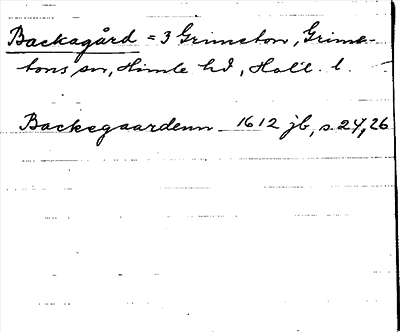 Backagård = 3 Grimeton, Grime-
tons sn, Himle hd, Hall. l.
Backegaardenn 1612 jb, s. 24, 26